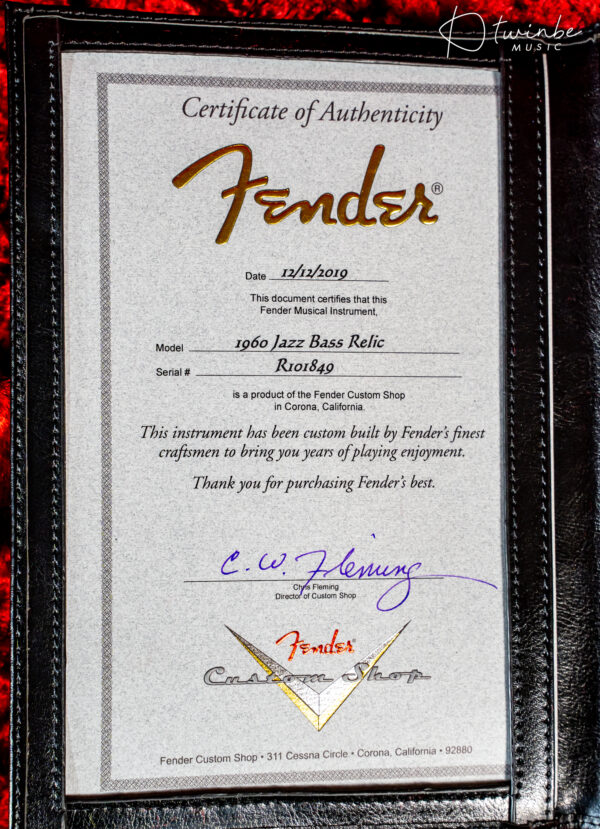 Dtwinbe
MUSIC
Certificate of Authenticity
Fender®
Date 12/12/2019
This document certifies that this
Fender Musical Instrument,
Model 1960 Jazz Bass Relic
Serial # R101849
is a product of the Fender Custom Shop
in Corona, California.
This instrument has been custom built by Fender's finest
craftsmen to bring you years of playing enjoyment.
Thank you for purchasing Fender's best.
C. W. Fleming
Chris Fleming
Director of Custom Shop
Fender®
Custom Shop
Fender Custom Shop • 311 Cessna Circle • Corona, California • 92880